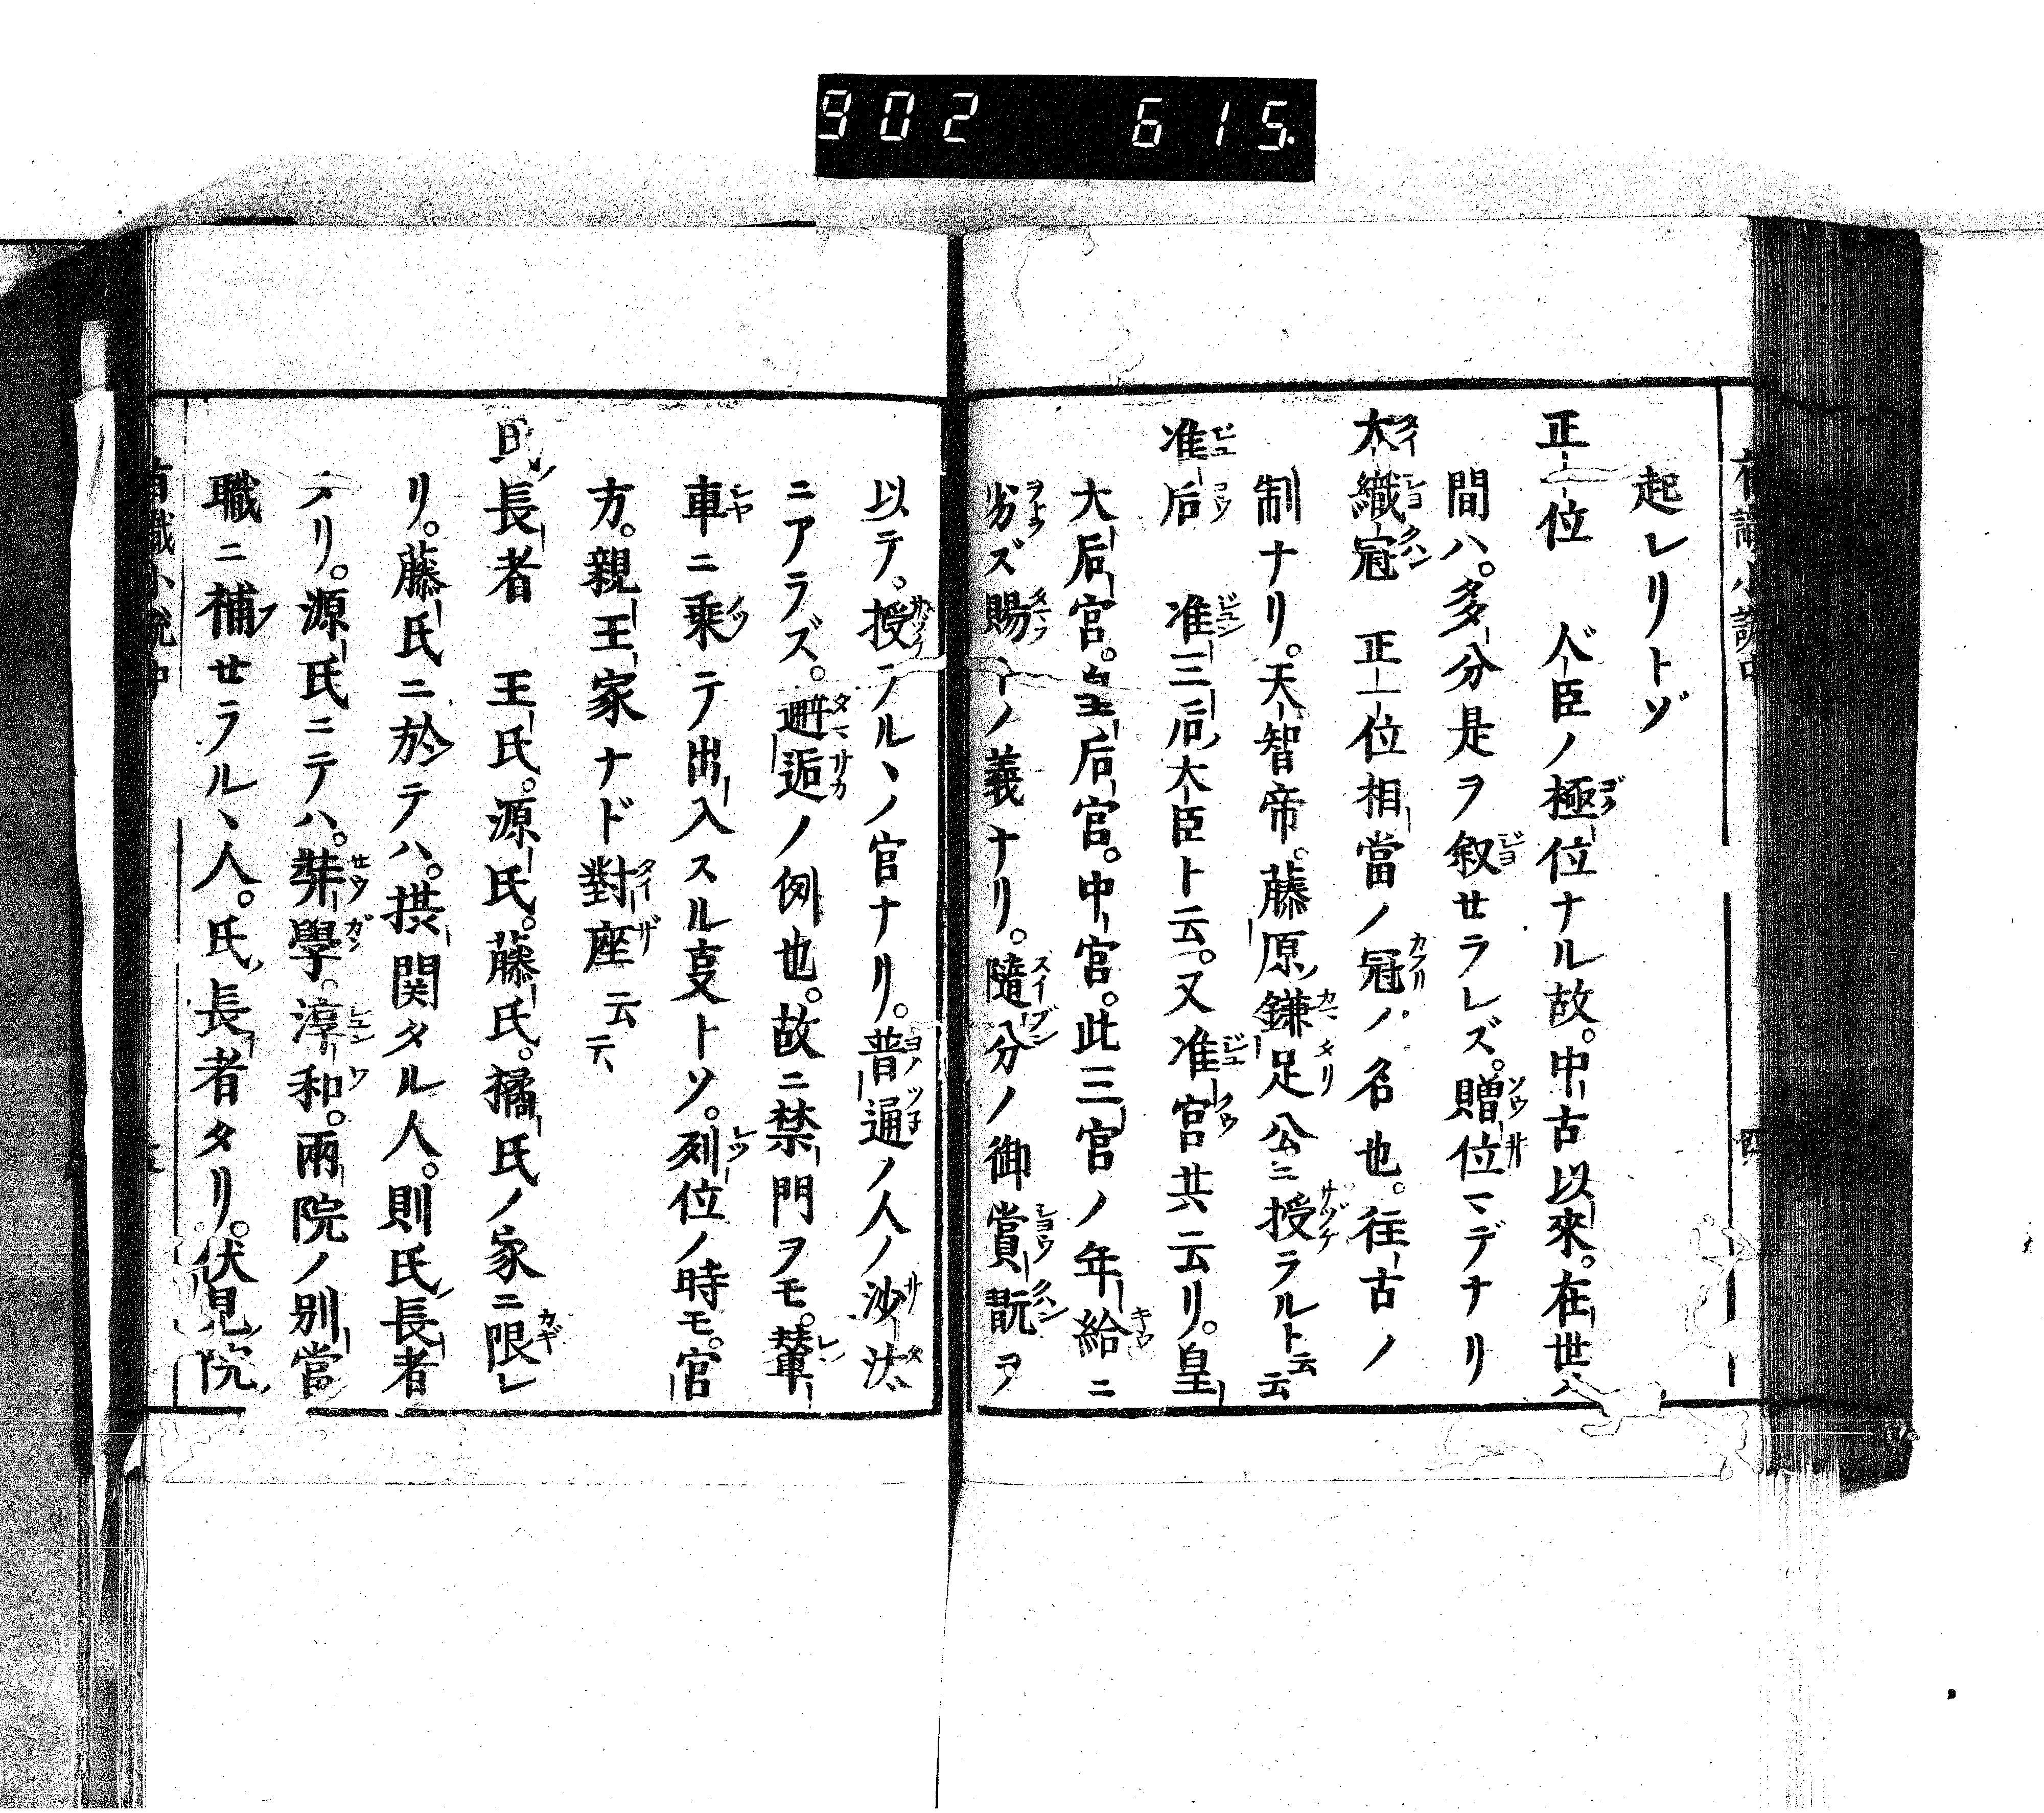 902 615.
起レリトゾ
正一位 人臣ノ極位ナル故。中古以來。在世ノ
間ハ。多分是ヲ叙セラレズ。贈位マデナリ
大織冠 正一位相當ノ冠ノ名也。往古ノ
制ナリ。天智帝。藤原鎌足公ニ授ラルト云云
准后 准三后大臣ト云。又准宮共云リ。皇
大后宮。皇后宮。中宮。此三宮ノ年給ニ
劣ズ賜トノ義ナリ。隨分ノ御賞翫ヲ
以テ。授ラルヽノ官ナリ。普通ノ人ノ沙汰
ニアラズ。邂逅ノ例也。故ニ禁門ヲモ。輦
車ニ乗テ出入スル亊トソ。列位ノ時モ。官
方。親王家ナド對座云云
氏長者 王氏。源氏。藤氏。橘氏ノ家ニ限レ
リ。藤氏ニ於テハ。摂関タル人。則氏長者
タリ。源氏ニテハ。奨學。淳和。兩院ノ別當
職ニ補セラルヽ人。氏長者タリ。伏見院